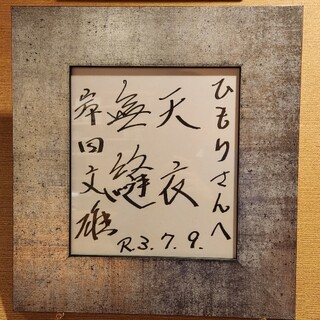 ひもりさんへ
天衣
無縫
岸田文雄
R.3.7.9.